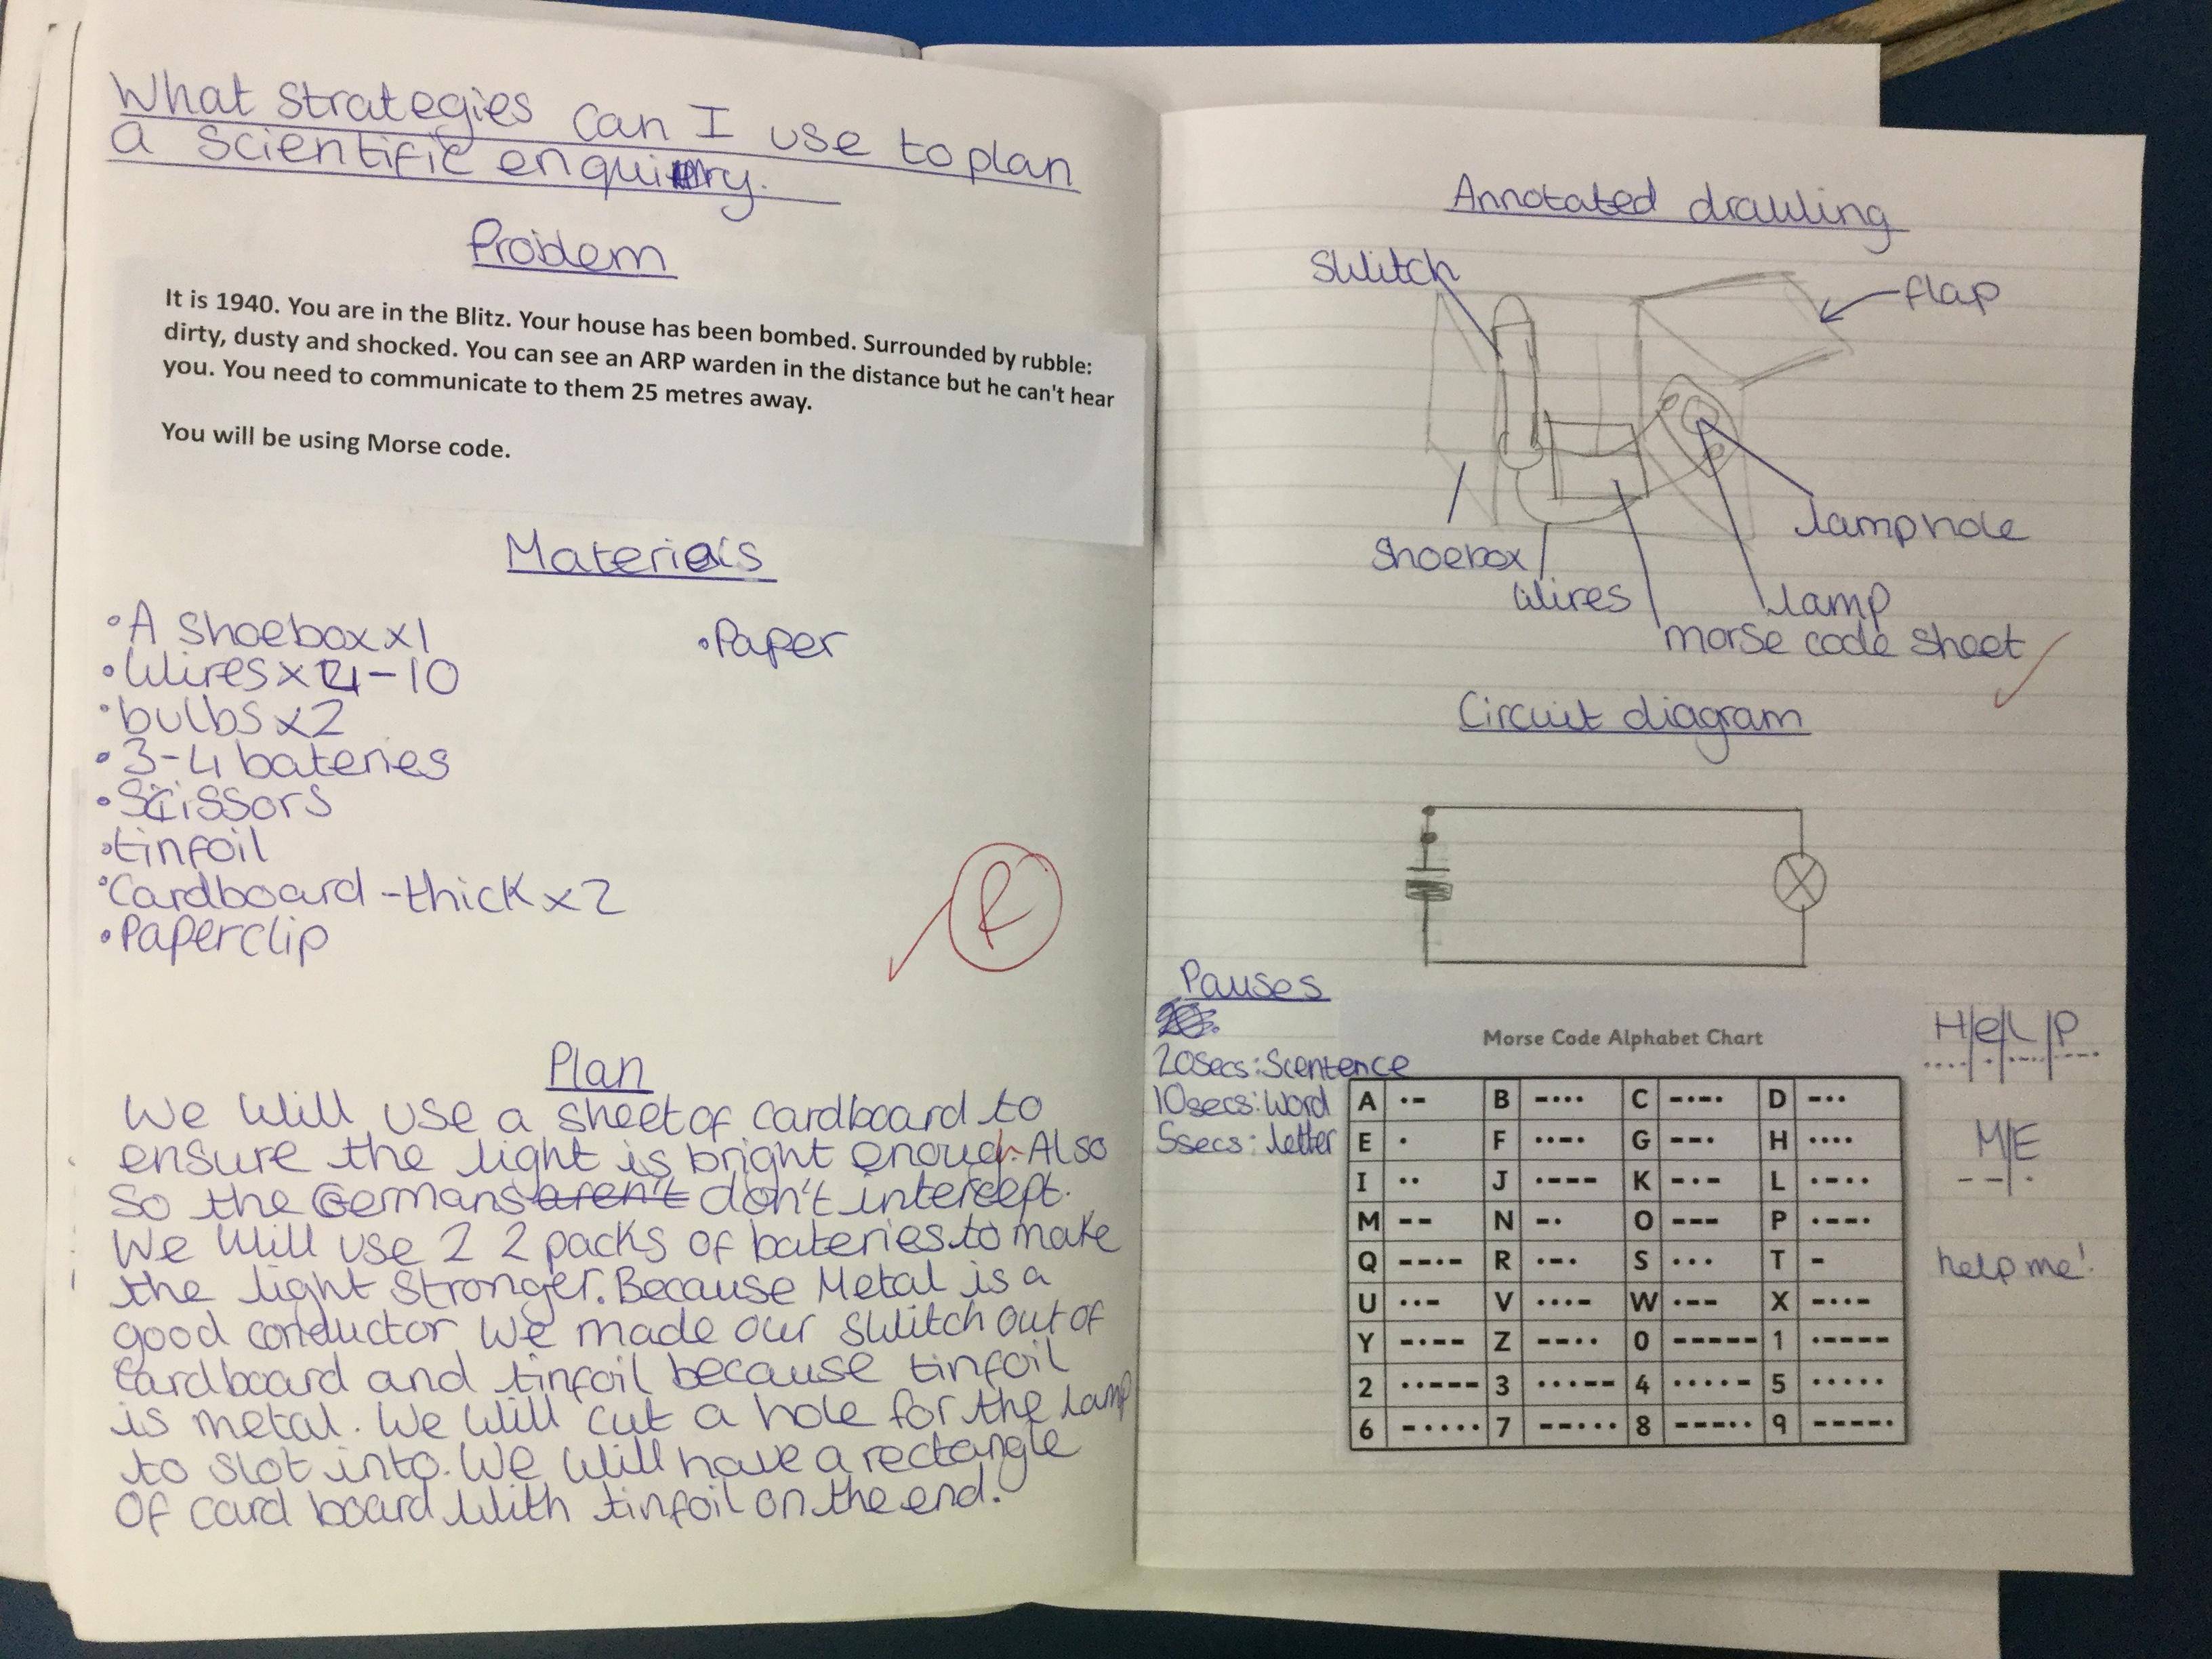 What strategies can I use to plan
a scientific enquiry.
Problem
It is 1940. You are in the Blitz. Your house has been bombed. Surrounded by rubble:
dirty, dusty and shocked. You can see an ARP warden in the distance but he can't hear
you. You need to communicate to them 25 metres away.
You will be using Morse code.
Materials
•A shoebox x1
•Wires x 4-10
•bulbs x2
•3-4 bateries
•Scissors
•tinfoil
•Cardboard -thick x2
•Paperclip
•Paper
R
Plan
We will use a sheet of cardboard to
ensure the light is bright enough. Also
So the Germans aren't don't intercept.
We will use 2 2 packs of bateries to make
the light stronger. Because Metal is a
good conductor we made our switch out of
Cardboard and tinfoil because tinfoil
is metal. We will cut a hole for the lamp
to slot into. We will have a rectangle
Of card board with tinfoil on the end.
Annotated drawing
switch
flap
lamp hole
Shoebox
wires
lamp
morse code sheet
Circuit diagram
Pauses
20secs: Scentence
10secs: word
5secs: letter
Morse Code Alphabet Chart
A ·- B -··· C -·-· D -··
E · F ··-· G --· H ····
I ·· J ·--- K -·- L ·-··
M -- N -· O --- P ·--·
Q --·- R ·-· S ··· T -
U ··- V ···- W ·-- X -··-
Y -·-- Z --·· 0 ----- 1 ·----
2 ··--- 3 ···-- 4 ····- 5 ·····
6 -···· 7 --··· 8 ---·· 9 ----·
H|e|L|P
····|·|·-··|·--·
M|E
--|·
help me!